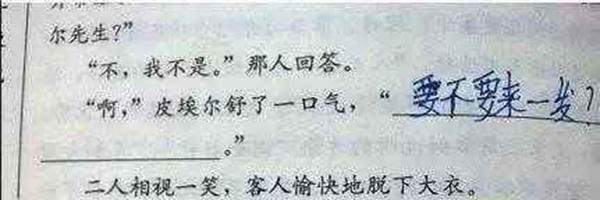 尔先生？”
“不，我不是。”那人回答。
“啊，”皮埃尔舒了一口气，“要不要来一发？
。”
二人相视一笑，客人愉快地脱下大衣。